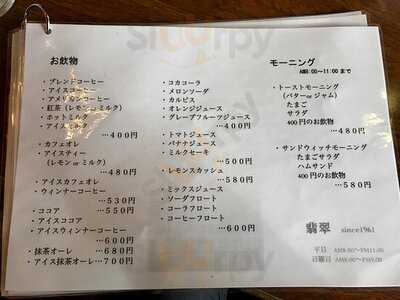 お飲物
・ブレンドコーヒー
・アイスコーヒー
・アメリカンコーヒー
・紅茶(レモンorミルク)
・ホットミルク
・アイスミルク
…400円
・カフェオレ
・アイスティー
(レモンorミルク)
…480円
・アイスカフェオレ
・ウィンナーコーヒー
…530円
・ココア …550円
・アイスココア
・アイスウィンナーコーヒー
…600円
・抹茶オーレ …680円
・アイス抹茶オーレ…700円
・コカコーラ
・メロンソーダ
・カルピス
・オレンジジュース
・グレープフルーツジュース
…400円
・トマトジュース
・バナナジュース
・ミルクセーキ
…500円
・レモンスカッシュ
…580円
・ミックスジュース
・ソーダフロート
・コーラフロート
・コーヒーフロート
…600円
モーニング
AM8:00～11:00 まで
・トーストモーニング
(バターorジャム)
たまご
サラダ
400円のお飲物
…480円
・サンドウィッチモーニング
たまごサラダ
ハムサンド
400円のお飲物
…580円
翡翠 since1961
平日 AM8:00~PM11:00
日曜日
Sluurpy